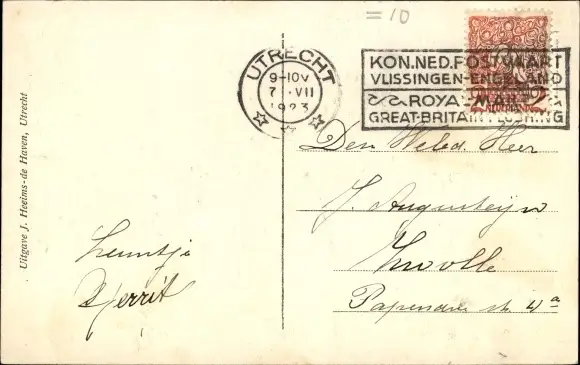 = 10
UTRECHT
9-10V
7 .VII
1923
KON. NED. POSTVAART
VLISSINGEN-ENGELAND
ROYAL-MAIL
GREAT-BRITAIN FLUSHING
2
Den Weled. Heer
J. Augusteijn
Zwolle
Papenstr. 4a
Gerrit
Uitgave J. Heelms-de Haven, Utrecht